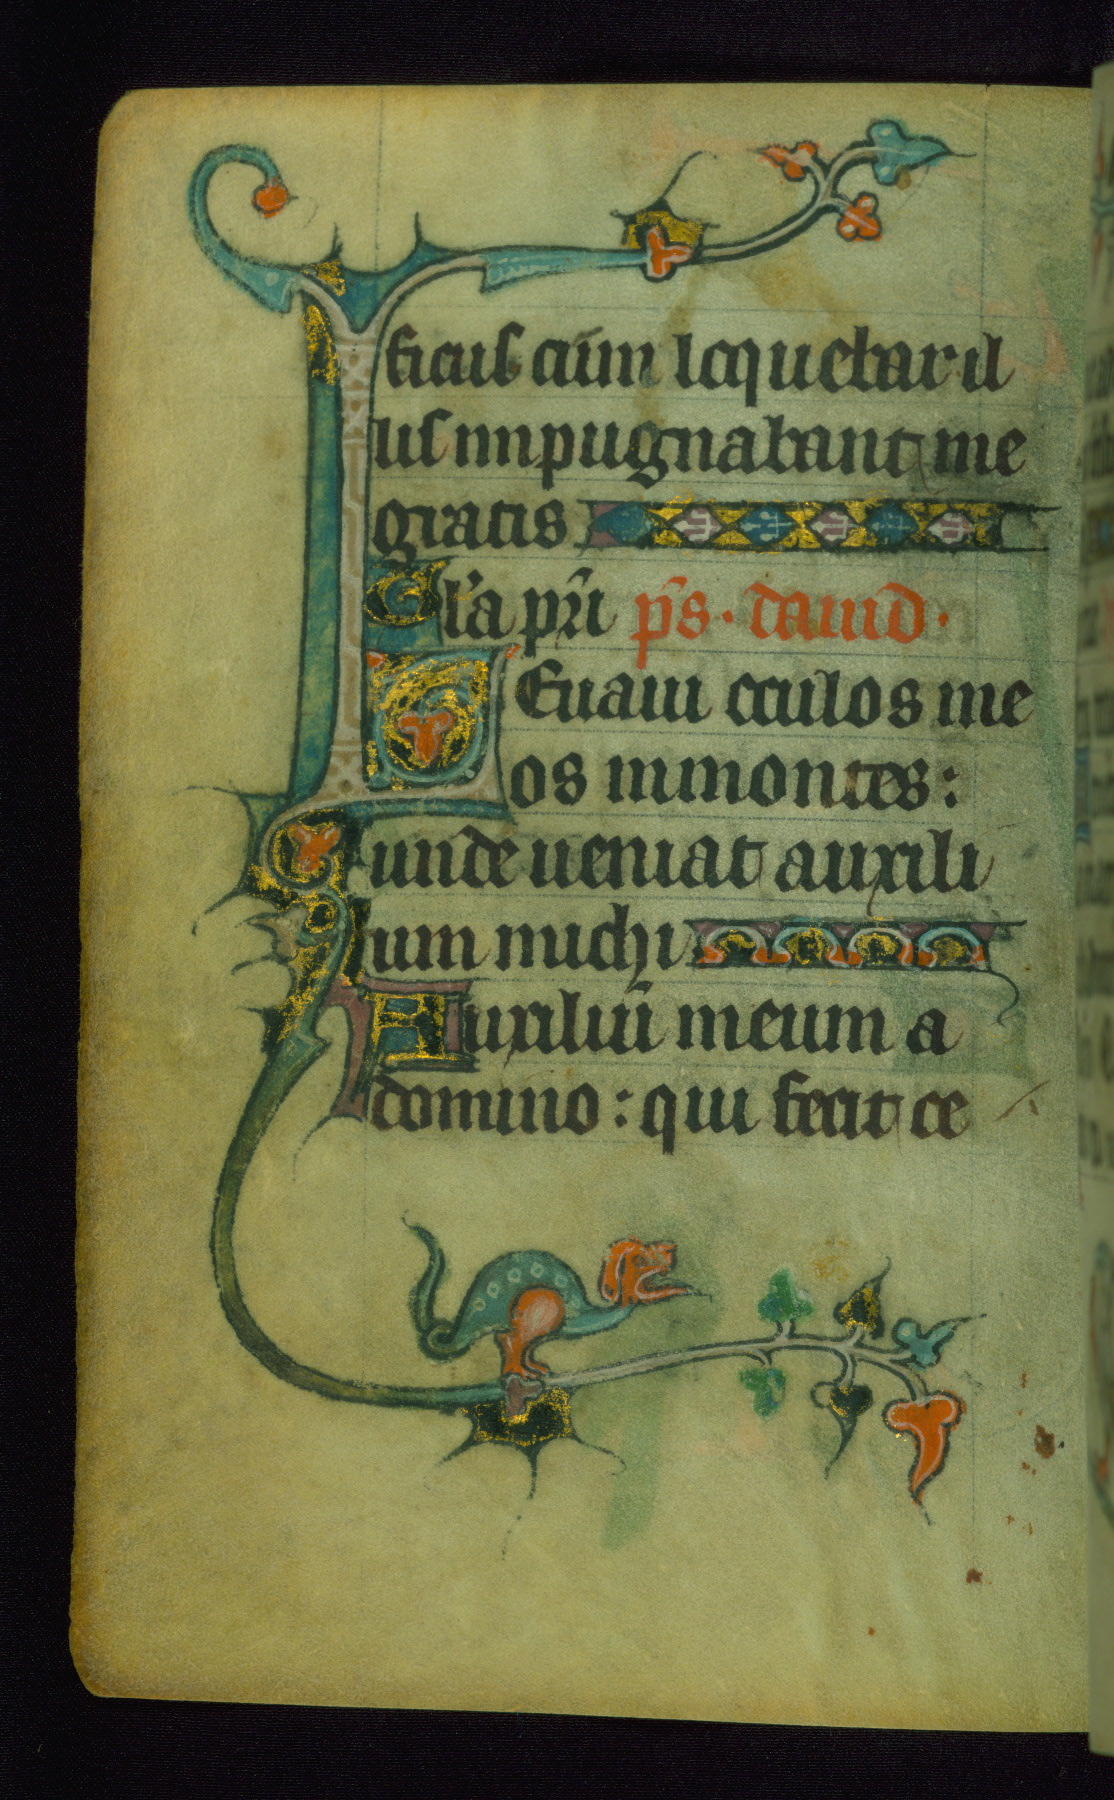 ficus cum loquebar il
lis inpugnabant me
gratis
Gl'a pri ps. dauid.
Leuaui oculos me
os in montes:
unde ueniat auxili
um michi
Auxiliū meum a
domino: qui fecit ce